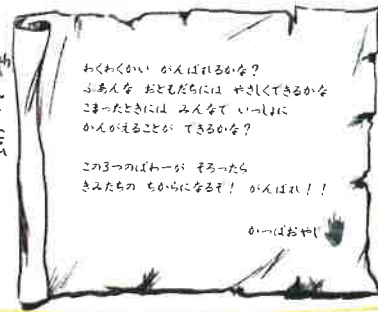 わくわくかい がんばれるかな？
ふあんな おともだちには やさしくできるかな
こまったときには みんなで いっしょに
かんがえることが できるかな？
この３つのぱわーが そろったら
きみたちの ちからになるぞ！ がんばれ！！
かっぱおやじ